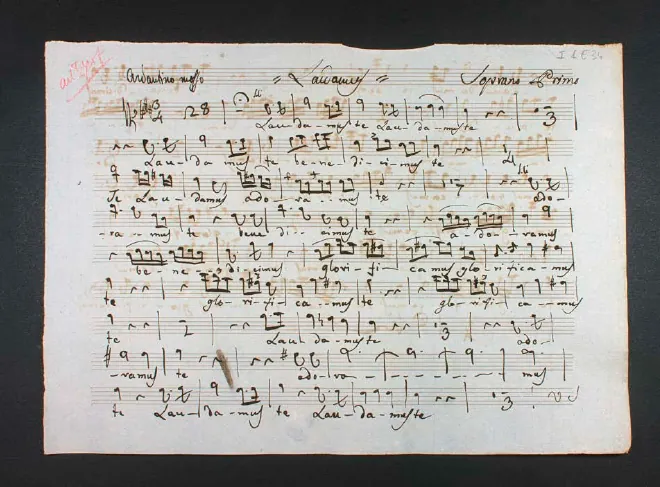 Andantino mosso = Laudamus = Soprano Primo
I 4 E 34
28 Lau-da-mus te Lau-da-mus te 3
Lau-da mus te be-ne-di-ci-mus te
Te Laudamus ado-ra-mus te ado-
ra-mus te bene-di-cimus te a-do-ramus
be-ne-dicimus glorifi-camus glo-rifica-mus
te glo-ri-fi-ca-mus te glo-rifi-ca-mus
te 2 Lau-da-mus te 3 ado-
-ramus te ado-ra-mus
te Lau-da-mus te Lau-da-mus te 3